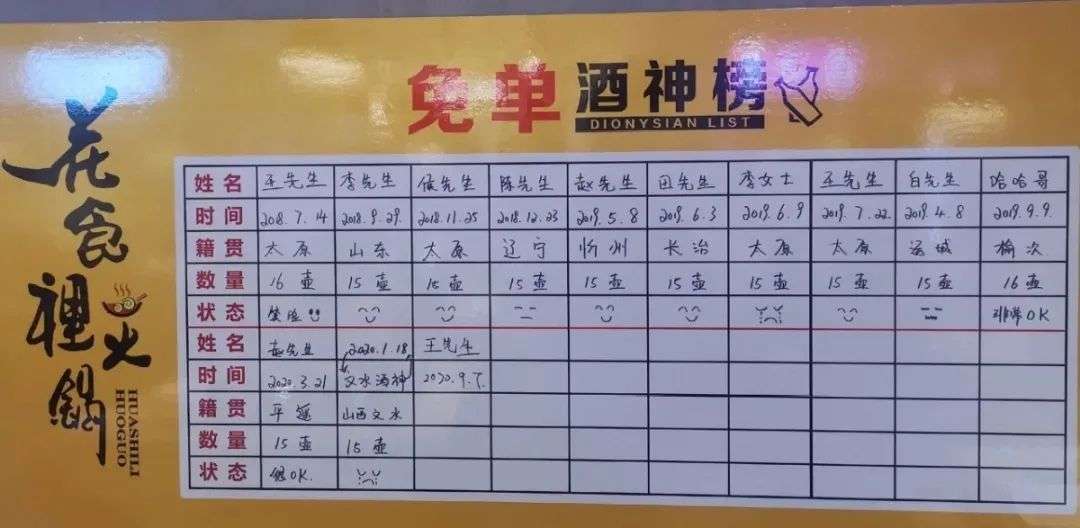 花食裡火鍋
HUASHILI
HUOGUO
免单酒神榜
DIONYSIAN LIST
姓名 王先生 李先生 侯先生 陈先生 赵先生 田先生 李女士 王先生 白先生 哈哈哥
时间 2018.7.14 2018.9.29. 2018.11.25 2018.12.23 2019.5.8 2019.6.3 2019.6.9 2019.7.22. 2019.4.8 2019.9.9.
籍贯 太原 山东 太原 辽宁 忻州 长治 太原 太原 运城 榆次
数量 16壶 15壶 15壶 15壶 15壶 15壶 15壶 15壶 15壶 16壶
状态 笑脸 非常OK
姓名 赵先生 2020.1.18 王先生
时间 2020.3.21 文水酒神 2020.9.7.
籍贯 平遥 山西文水
数量 15壶 15壶
状态 OK.